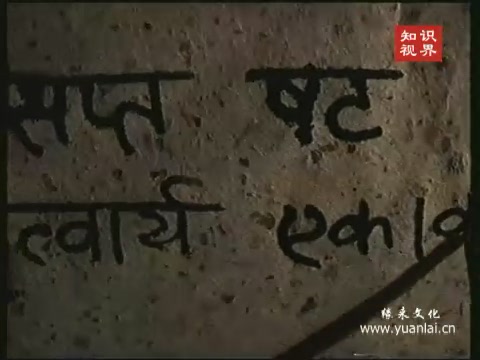 知识
视界
सप्त षट
त्वार्य एका
缘来文化
www.yuanlai.cn